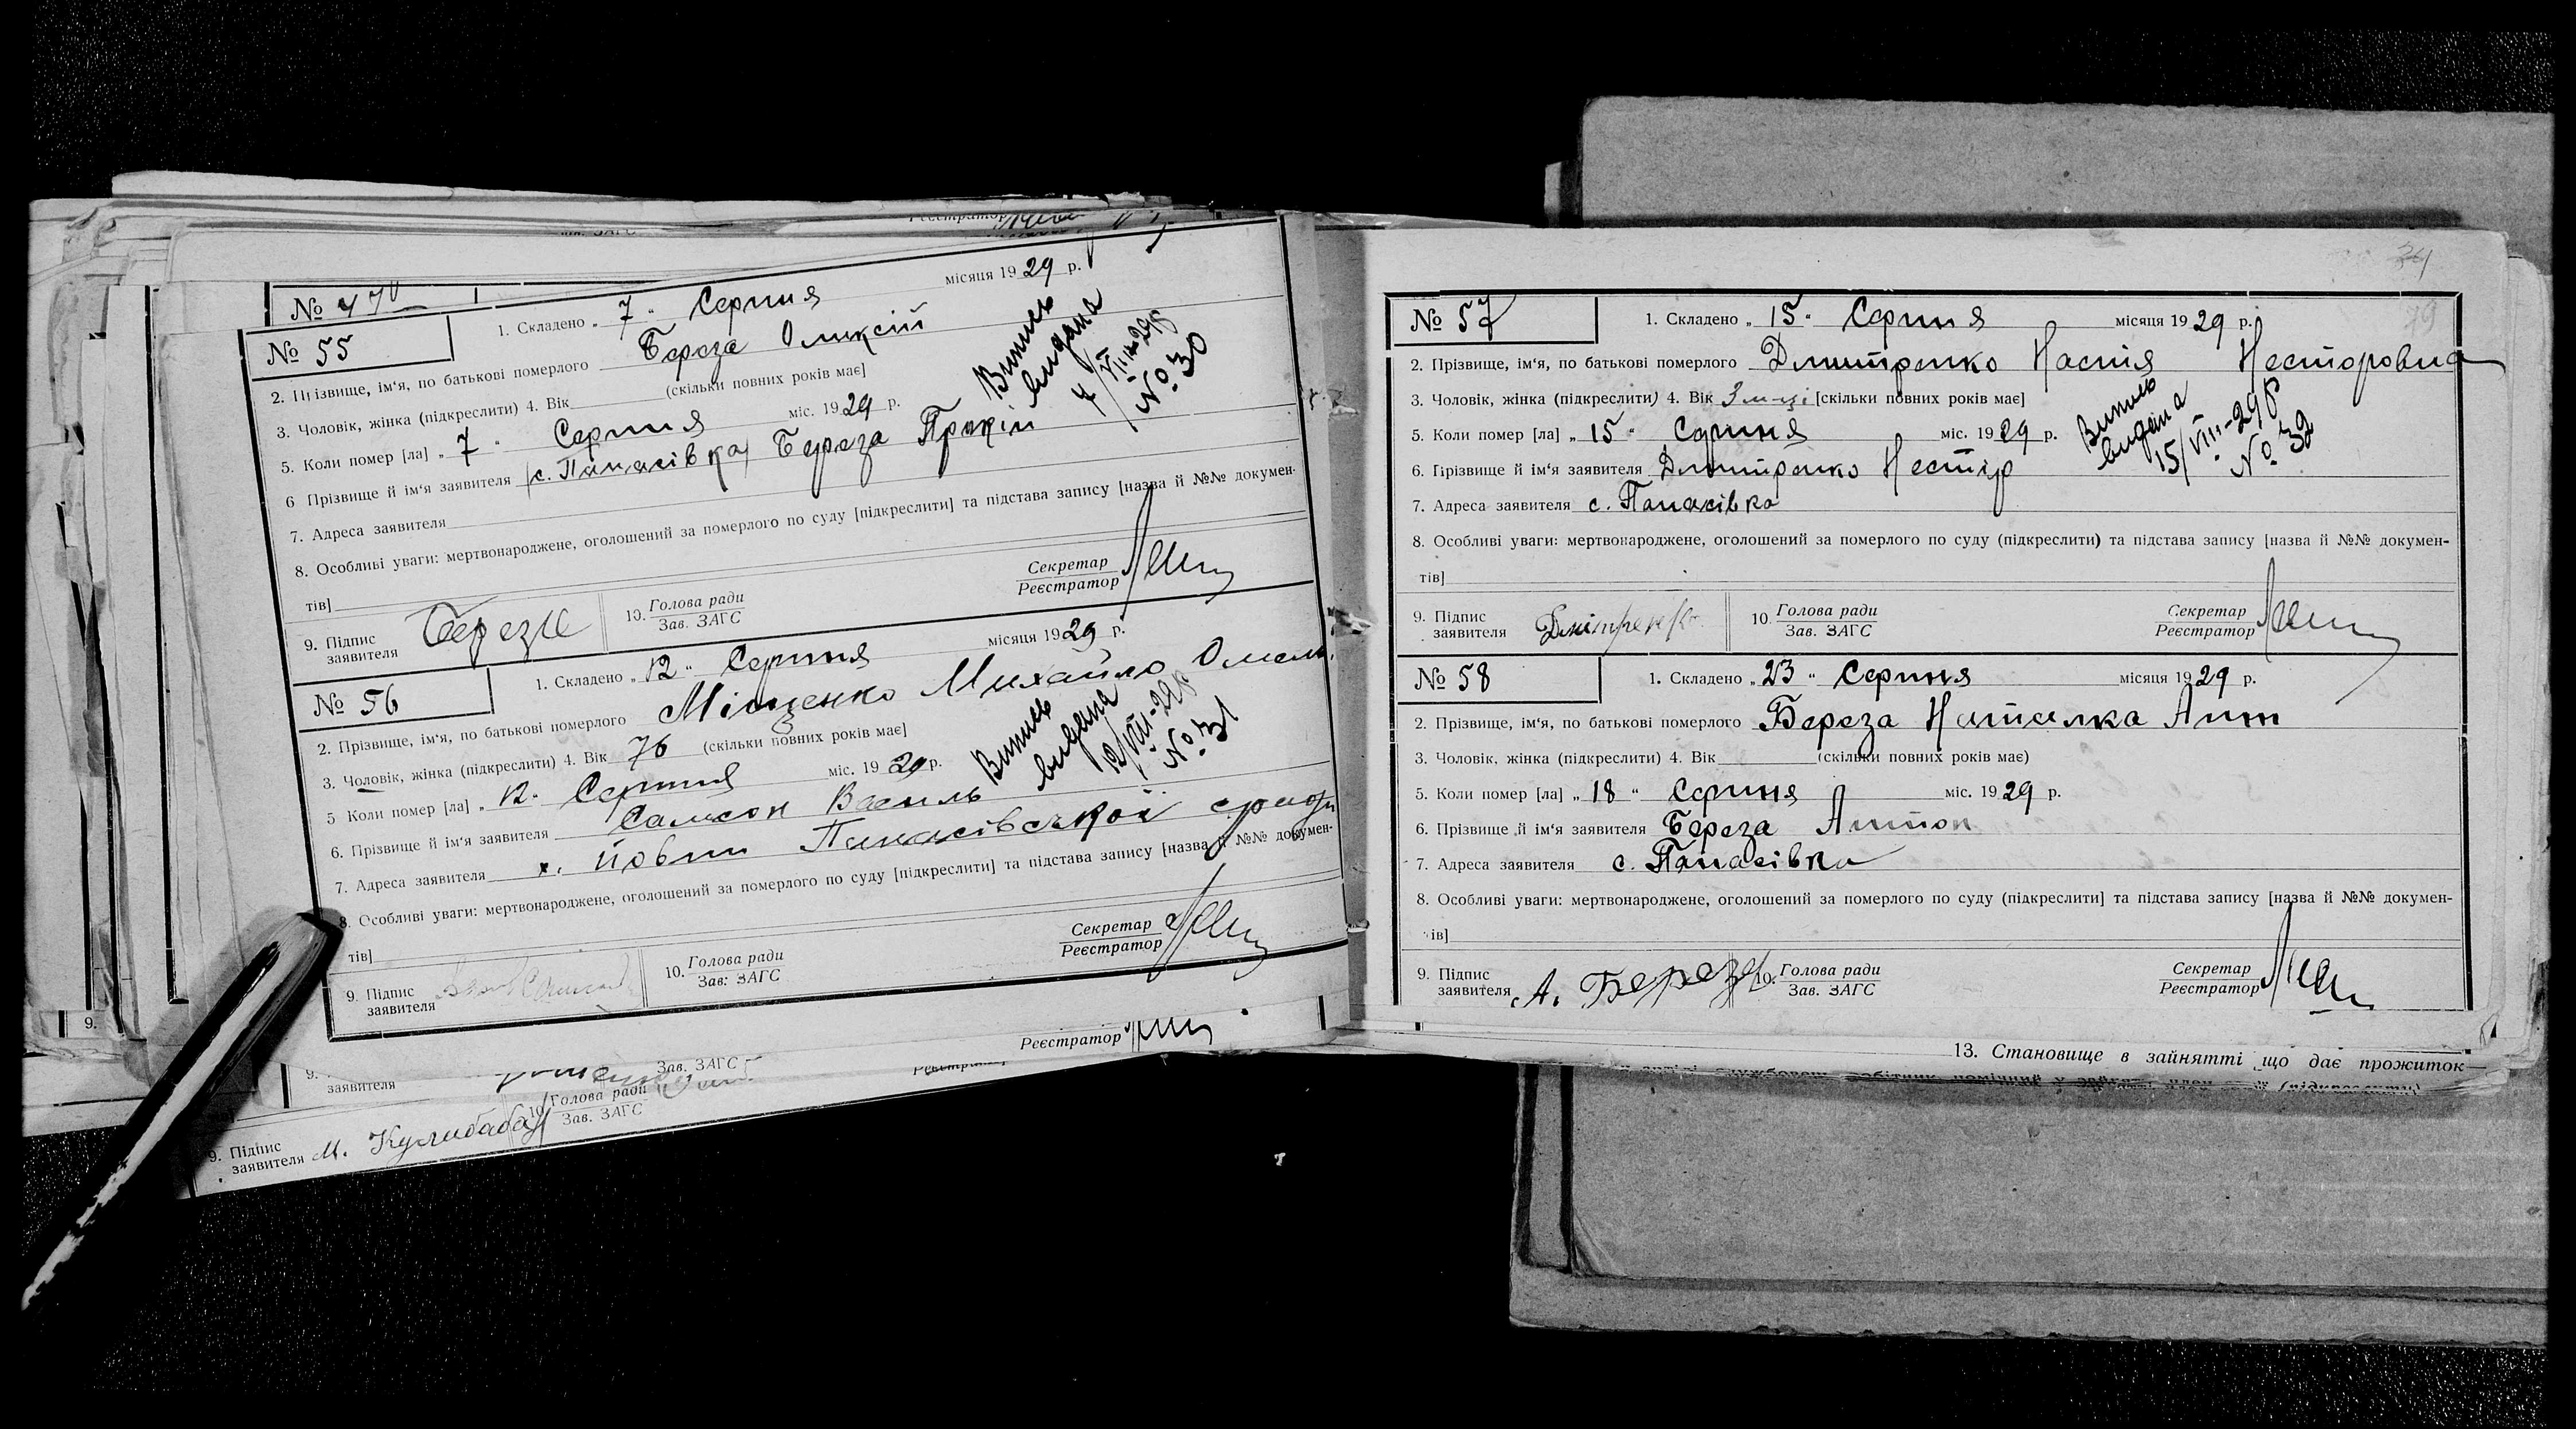 № 55
1. Складено „ 7 “ Серпня місяця 1929 р.
2. Прізвище, ім‘я, по батькові померлого Береза Оликсій
3. Чоловік, жінка (підкреслити) 4. Вік (скільки повних років має]
5. Коли помер [ла] „ 7 “ Серпня міс. 1929 р.
6 Прізвище й ім‘я заявителя (с. Панасівка) Береза Прокіп
Випись
видана
7/VIII-29р
№ 30
7. Адреса заявителя
8. Особливі уваги: мертвонароджене, оголошений за померлого по суду [підкреслити] та підстава запису [назва й №№ докумен-
тів]
9. Підпис заявителя Береза
10. Голова ради Зав. ЗАГС
Секретар Реєстратор
№ 56
1. Складено „ 12 “ Серпня місяця 1929 р.
2. Прізвище, ім‘я, по батькові померлого Міщенко Михайло Омель.
3. Чоловік, жінка (підкреслити) 4. Вік 76 (скільки повних років має]
5 Коли помер [ла] „ 12 “ Серпня міс. 1929 р.
Випись
видана
12/VIII-29р
№ 31
6. Прізвище й ім‘я заявителя Самсон Василь
7. Адреса заявителя х. Панасівської с/ради
8. Особливі уваги: мертвонароджене, оголошений за померлого по суду [підкреслити] та підстава запису [назва й №№ докумен-
тів]
9. Підпис заявителя
10. Голова ради Зав: ЗАГС
Секретар Реєстратор
Реєстратор
9. заявителя
Зав. ЗАГС
9. Підпис заявителя М. Кулибаба
10 Голова ради Зав. ЗАГС
9.
№ 57
1. Складено „ 15 “ Серпня місяця 1929 р.
2. Прізвище, ім‘я, по батькові померлого Дмитренко Настія Несторовна
3. Чоловік, жінка (підкреслити) 4. Вік 3 м-ці [скільки повних років має]
5. Коли помер [ла] „ 15 “ Серпня міс. 1929 р.
Випись
видана
15/VIII-29р
№ 32
6. Прізвище й ім‘я заявителя Дмитренко Нестір
7. Адреса заявителя с. Панасівка
8. Особливі уваги: мертвонароджене, оголошений за померлого по суду (підкреслити) та підстава запису [назва й №№ докумен-
тів]
9. Підпис заявителя Дмітренко
10. Голова ради Зав. ЗАГС
Секретар Реєстратор
№ 58
1. Складено „ 23 “ Серпня місяця 1929 р.
2. Прізвище, ім‘я, по батькові померлого Береза Наталка Ант
3. Чоловік, жінка (підкреслити) 4. Вік (скільки повних років має)
5. Коли помер [ла] „ 18 “ Серпня міс. 1929 р.
6. Прізвище й ім‘я заявителя Береза Антон
7. Адреса заявителя с. Панасівка
8. Особливі уваги: мертвонароджене, оголошений за померлого по суду (підкреслити] та підстава запису [назва й №№ докумен-
ів]
9. Підпис заявителя А. Береза
10. Голова ради Зав. ЗАГС
Секретар Реєстратор
13. Становище в зайнятті що дає прожиток